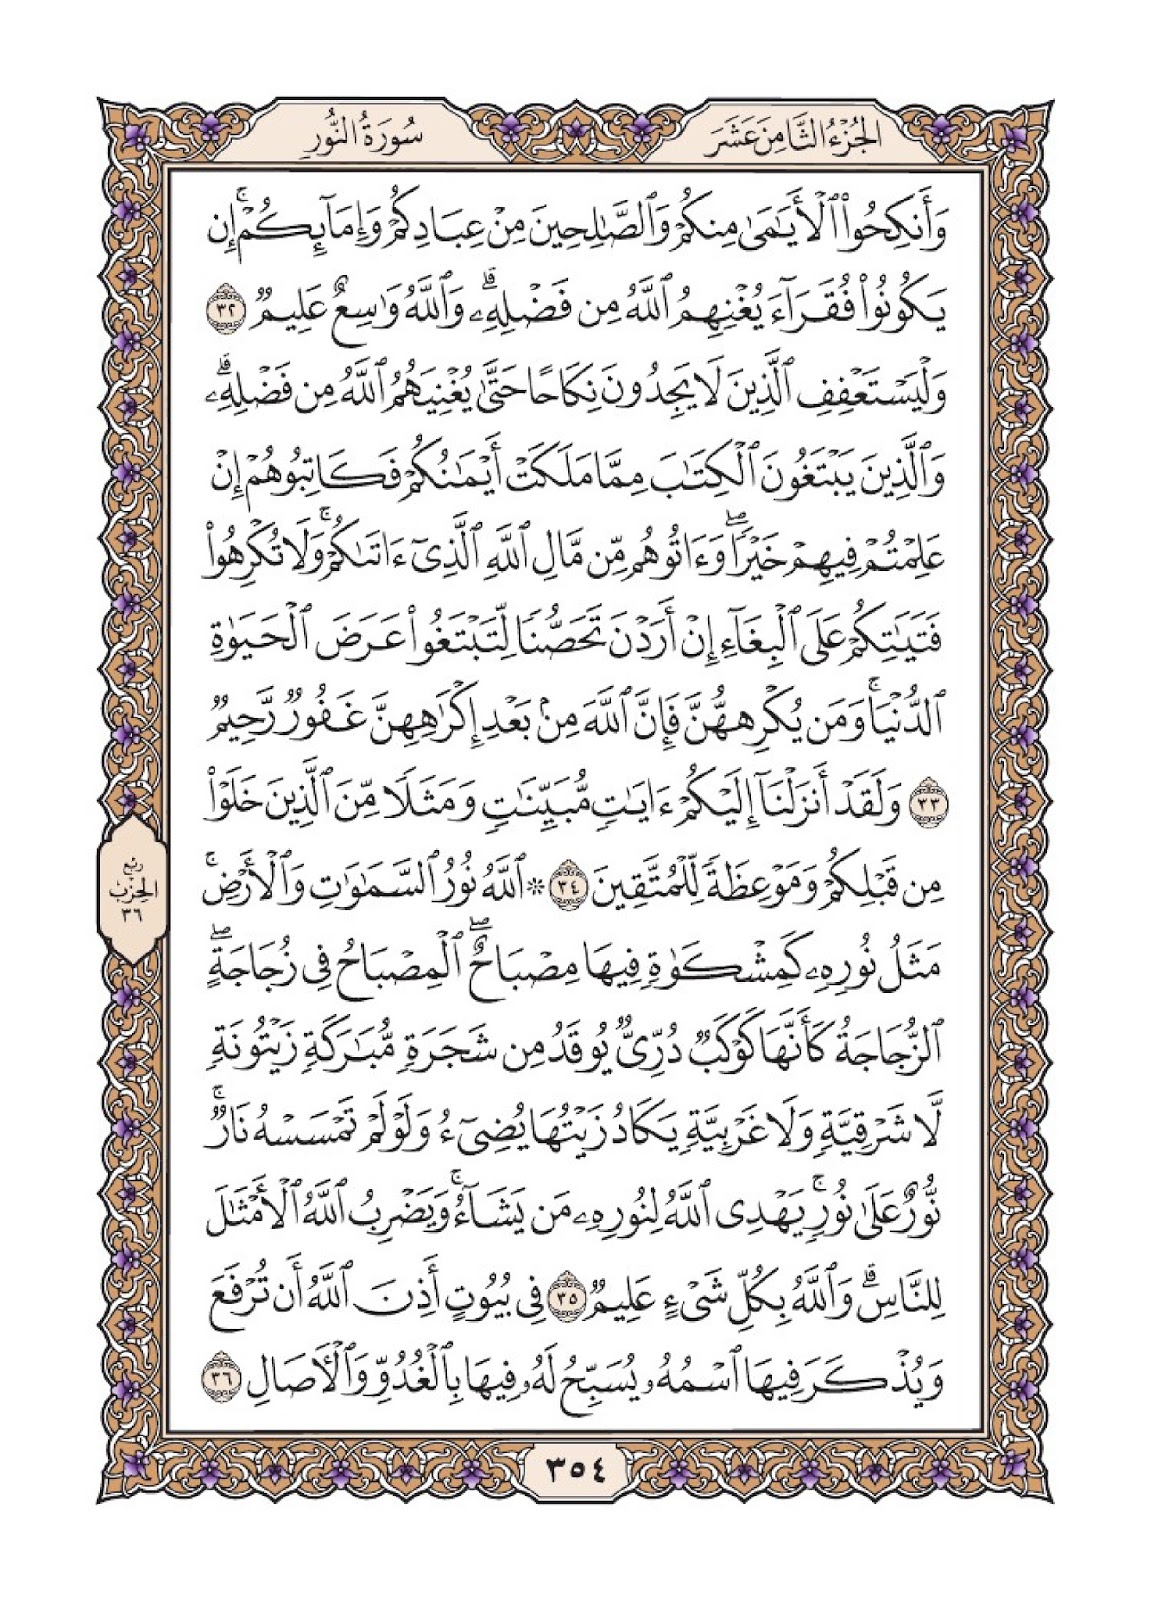 الجُزْءُ الثَّامِنَ عَشَرَ
سُورَةُ النُّورِ
وَأَنكِحُوا۟ ٱلْأَيَـٰمَىٰ مِنكُمْ وَٱلصَّـٰلِحِينَ مِنْ عِبَادِكُمْ وَإِمَآئِكُمْ ۚ إِن
يَكُونُوا۟ فُقَرَآءَ يُغْنِهِمُ ٱللَّهُ مِن فَضْلِهِۦ ۗ وَٱللَّهُ وَٰسِعٌ عَلِيمٌ ٣٢
وَلْيَسْتَعْفِفِ ٱلَّذِينَ لَا يَجِدُونَ نِكَاحًا حَتَّىٰ يُغْنِيَهُمُ ٱللَّهُ مِن فَضْلِهِۦ ۗ
وَٱلَّذِينَ يَبْتَغُونَ ٱلْكِتَـٰبَ مِمَّا مَلَكَتْ أَيْمَـٰنُكُمْ فَكَاتِبُوهُمْ إِنْ
عَلِمْتُمْ فِيهِمْ خَيْرًا ۖ وَءَاتُوهُم مِّن مَّالِ ٱللَّهِ ٱلَّذِىٓ ءَاتَىٰكُمْ ۚ وَلَا تُكْرِهُوا۟
فَتَيَـٰتِكُمْ عَلَى ٱلْبِغَآءِ إِنْ أَرَدْنَ تَحَصُّنًا لِّتَبْتَغُوا۟ عَرَضَ ٱلْحَيَوٰةِ
ٱلدُّنْيَا ۚ وَمَن يُكْرِههُّنَّ فَإِنَّ ٱللَّهَ مِنۢ بَعْدِ إِكْرَٰهِهِنَّ غَفُورٌ رَّحِيمٌ
٣٣ وَلَقَدْ أَنزَلْنَآ إِلَيْكُمْ ءَايَـٰتٍ مُّبَيِّنَـٰتٍ وَمَثَلًا مِّنَ ٱلَّذِينَ خَلَوْا۟
مِن قَبْلِكُمْ وَمَوْعِظَةً لِّلْمُتَّقِينَ ٣٤ ۞ ٱللَّهُ نُورُ ٱلسَّمَـٰوَٰتِ وَٱلْأَرْضِ ۚ
مَثَلُ نُورِهِۦ كَمِشْكَوٰةٍ فِيهَا مِصْبَاحٌ ۖ ٱلْمِصْبَاحُ فِى زُجَاجَةٍ ۖ
ٱلزُّجَاجَةُ كَأَنَّهَا كَوْكَبٌ دُرِّىٌّ يُوقَدُ مِن شَجَرَةٍ مُّبَـٰرَكَةٍ زَيْتُونَةٍ
لَّا شَرْقِيَّةٍ وَلَا غَرْبِيَّةٍ يَكَادُ زَيْتُهَا يُضِىٓءُ وَلَوْ لَمْ تَمْسَسْهُ نَارٌ ۚ
نُّورٌ عَلَىٰ نُورٍ ۗ يَهْدِى ٱللَّهُ لِنُورِهِۦ مَن يَشَآءُ ۚ وَيَضْرِبُ ٱللَّهُ ٱلْأَمْثَـٰلَ
لِلنَّاسِ ۗ وَٱللَّهُ بِكُلِّ شَىْءٍ عَلِيمٌ ٣٥ فِى بُيُوتٍ أَذِنَ ٱللَّهُ أَن تُرْفَعَ
وَيُذْكَرَ فِيهَا ٱسْمُهُۥ يُسَبِّحُ لَهُۥ فِيهَا بِٱلْغُدُوِّ وَٱلْـَٔاصَالِ ٣٦
ربع
الحزب
٣٦
٣٥٤